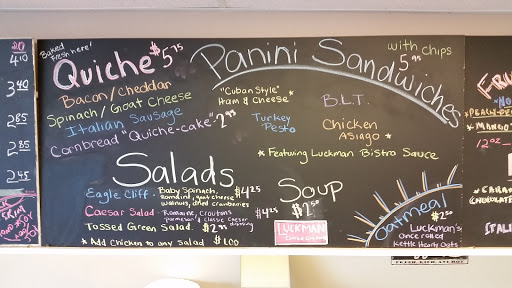 20
4.10
3.40
2.85
2.85
2.45
Baked
Fresh here!
Quiche $5.75
Bacon/Cheddar
Spinach/Goat Cheese
Italian Sausage
Cornbread "Quiche-cake" 2.95
Panini Sandwiches
with chips
5.95
"Cuban Style"
Ham & Cheese *
Turkey
Pesto
B.L.T.
Chicken
Asiago *
* Featuring Luckman Bistro Sauce
Salads
Eagle Cliff - Baby Spinach,
Romaine, goat cheese
walnuts, dried cranberries $4.25
Caesar Salad - Romaine, croutons
parmesan & classic caesar
dressing $4.25
Tossed Green Salad $2.95
* Add Chicken to any Salad $1.00
Soup
$2.50
LUCKMAN
Oatmeal
$2.50
Luckman's
Once rolled
Kettle Hearty Oats
MANGO
12oz